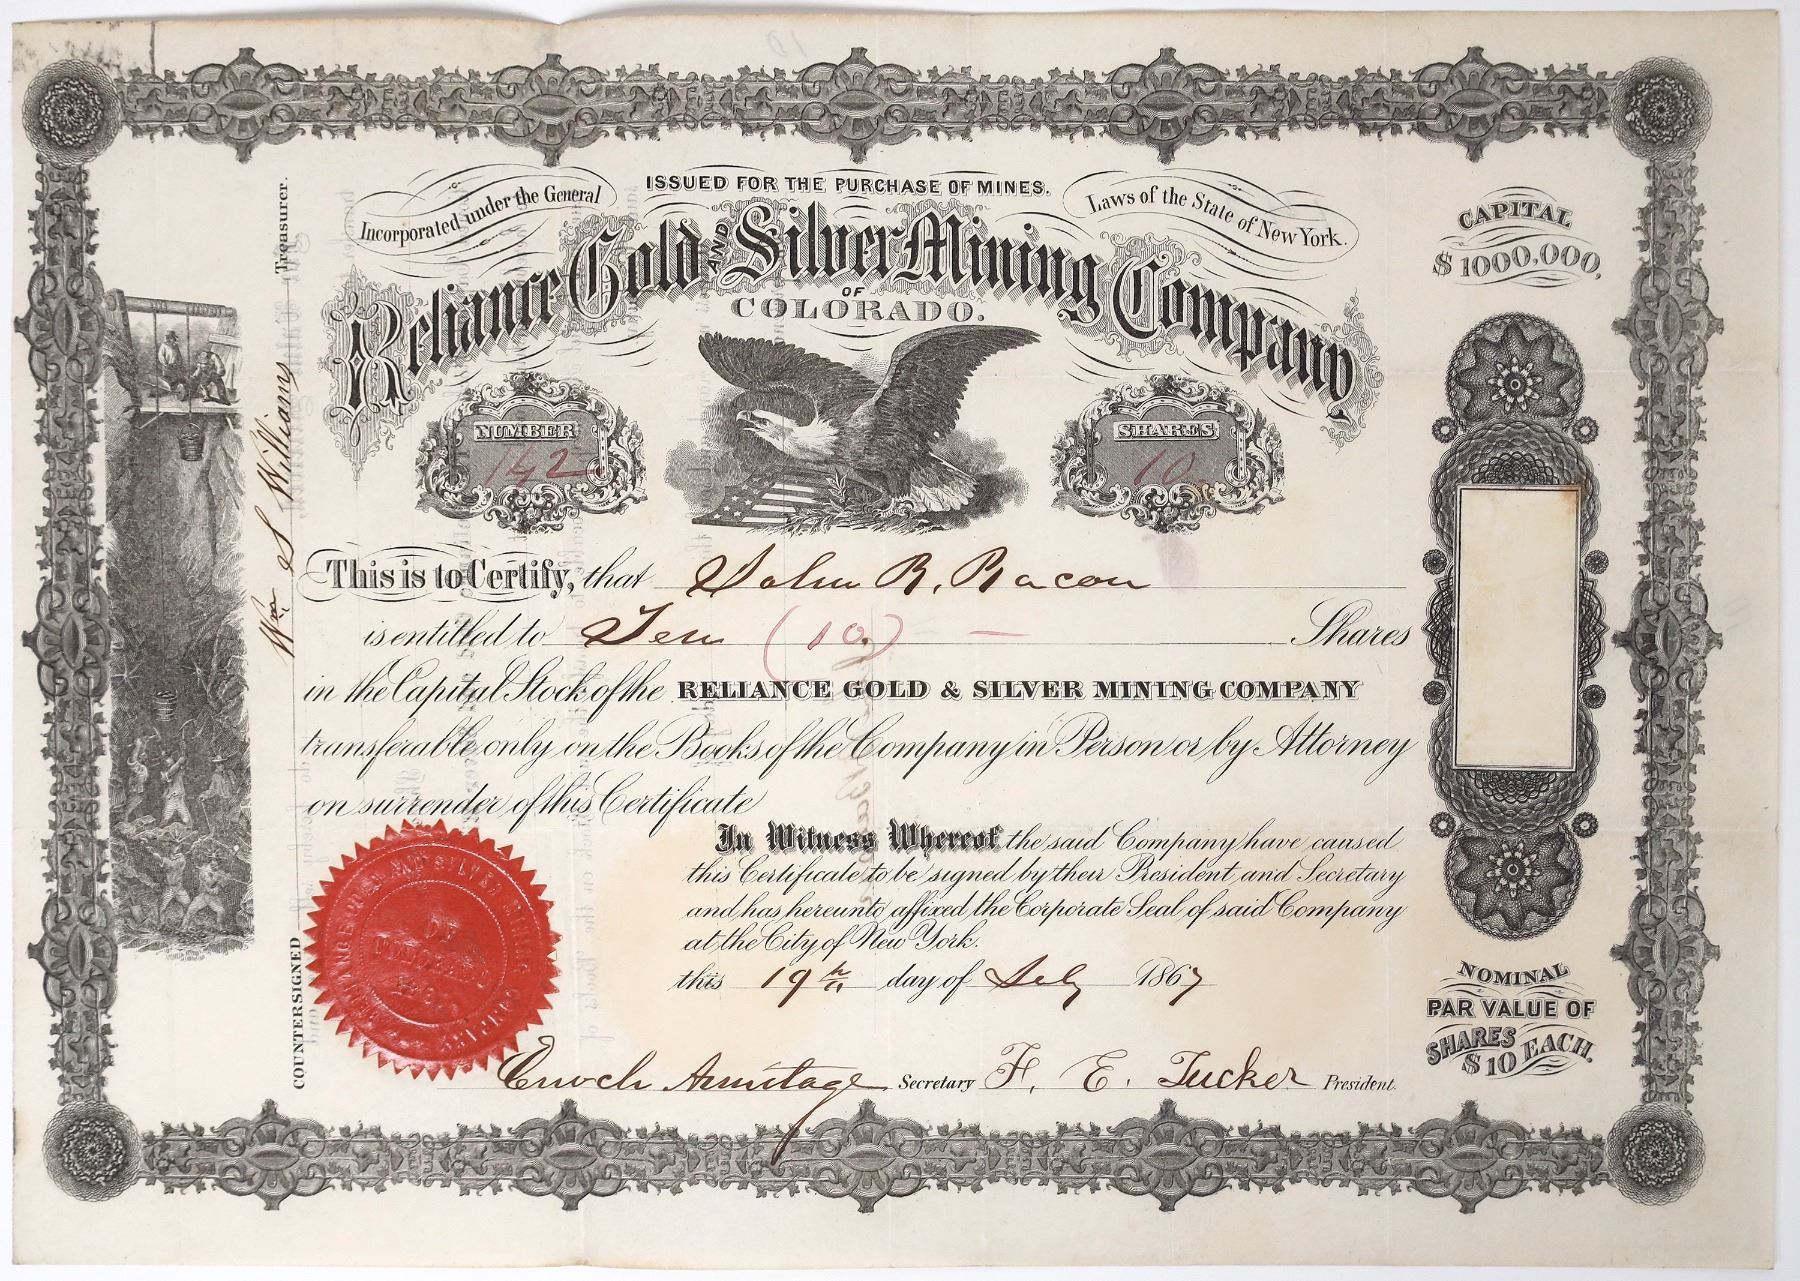 ISSUED FOR THE PURCHASE OF MINES.
Incorporated under the General
Laws of the State of New York.
Reliance Gold AND Silver Mining Company
OF
COLORADO.
CAPITAL
$1000,000,
NUMBER
142
SHARES
10
This is to Certify, that John R. Bacon
is entitled to Ten (10) — Shares
in the Capital Stock of the RELIANCE GOLD & SILVER MINING COMPANY
transferable only on the Books of the Company in Person or by Attorney
on surrender of this Certificate
In Witness Whereof the said Company have caused
this Certificate to be signed by their President and Secretary
and has hereunto affixed the Corporate Seal of said Company
at the City of New York.
this 19th day of July 1867
Enoch Armitage Secretary F. E. Tucker President.
COUNTERSIGNED
Wm S Williams
Treasurer.
NOMINAL
PAR VALUE OF
SHARES
$10 EACH.